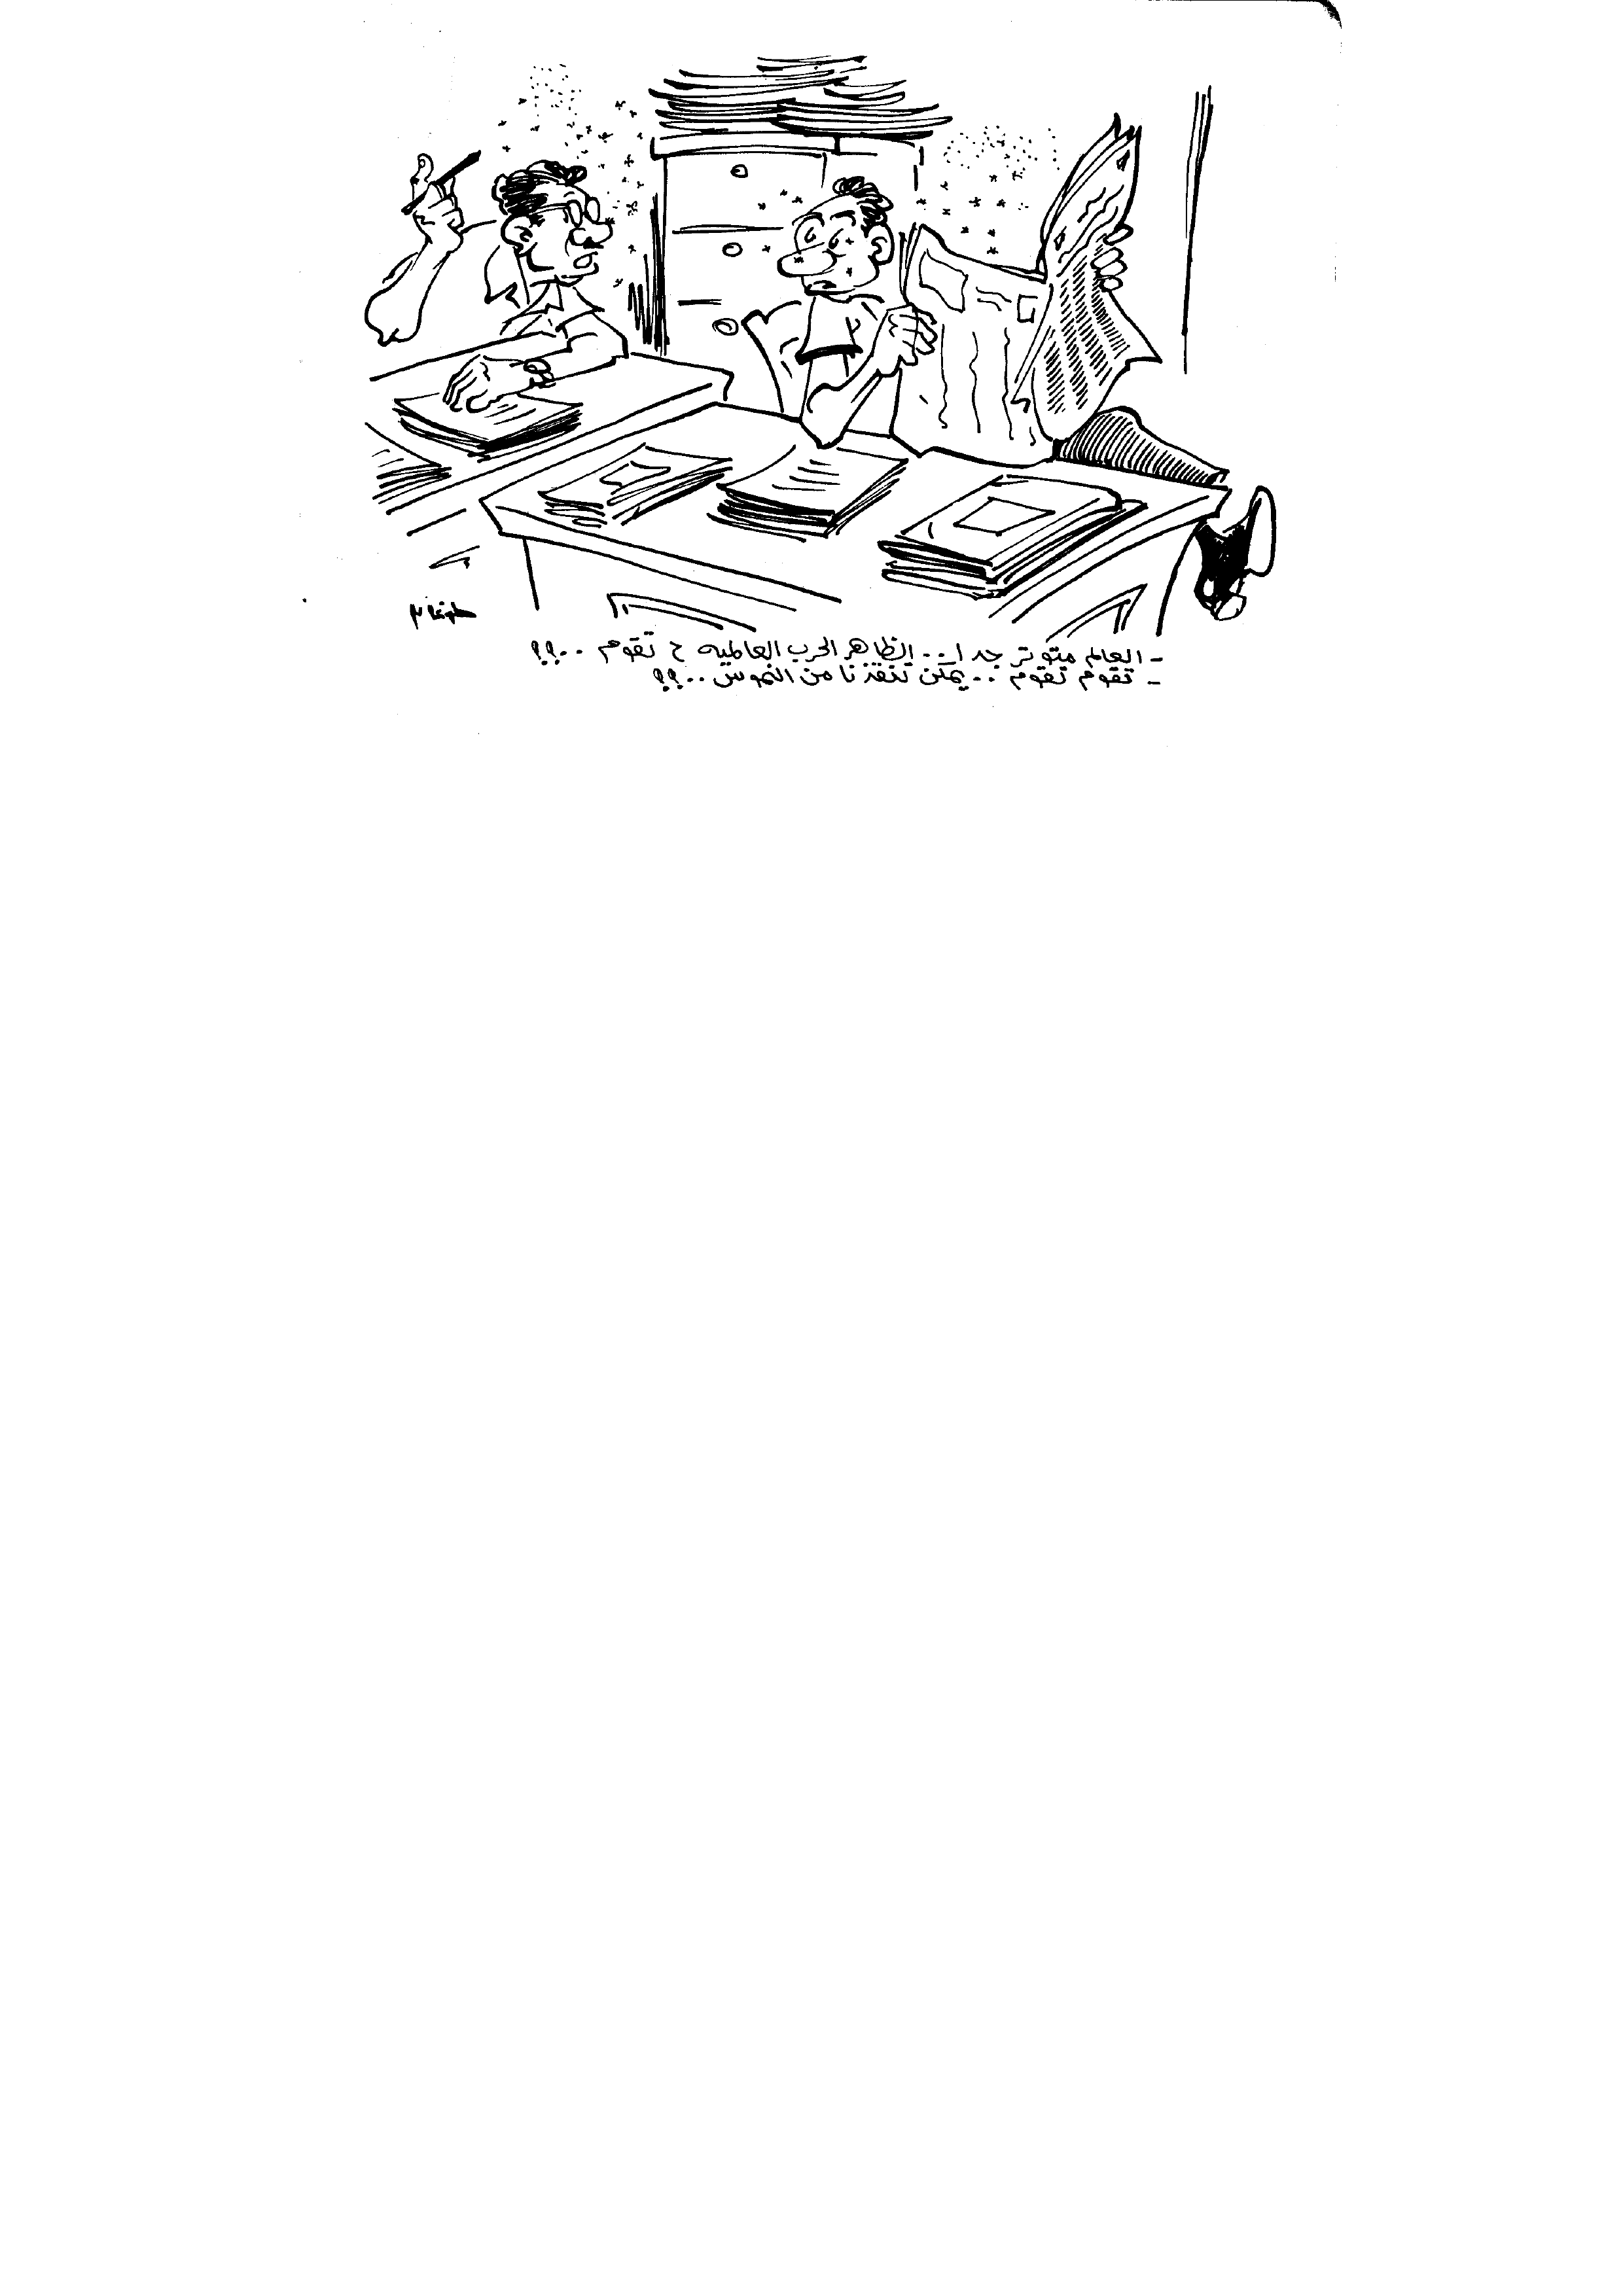 - العالم متوتر جدا .. الظاهر الحرب العالميه ح تقوم ..؟؟
- تقوم تقوم .. يمكن تنقذنا من النموس ..؟؟